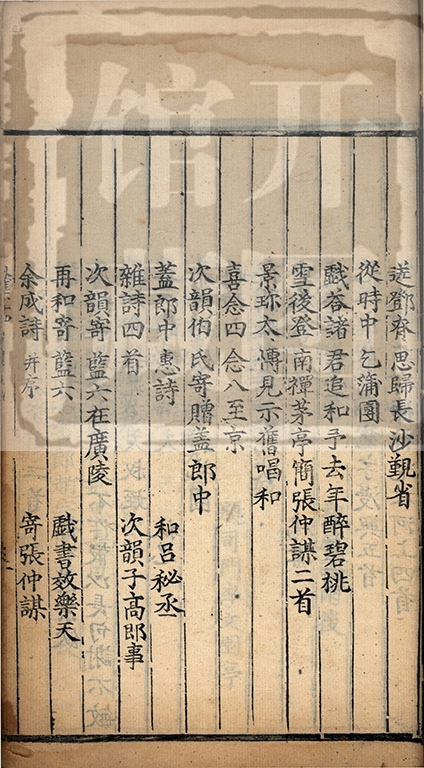 送鄧慎思歸長沙覲省
從時中乞蒲團
戲答諸君追和予去年醉碧桃
雪後登南禪茅亭簡張仲謀二首
景珍太博見示舊唱和
喜念四念八至京
次韻伯氏寄贈蓋郎中
蓋郎中惠詩 和呂秘丞
雜詩四首 次韻子高即事
次韻寄藍六在廣陵
再和寄藍六 戲書效樂天
余成詩并序 寄張仲謀